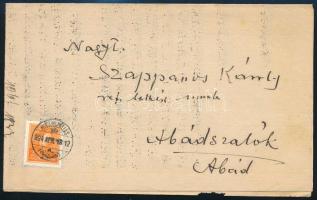 Nagyt.
Szappanos Károly
ref. lelkész urnak
Abádszalók
Abád